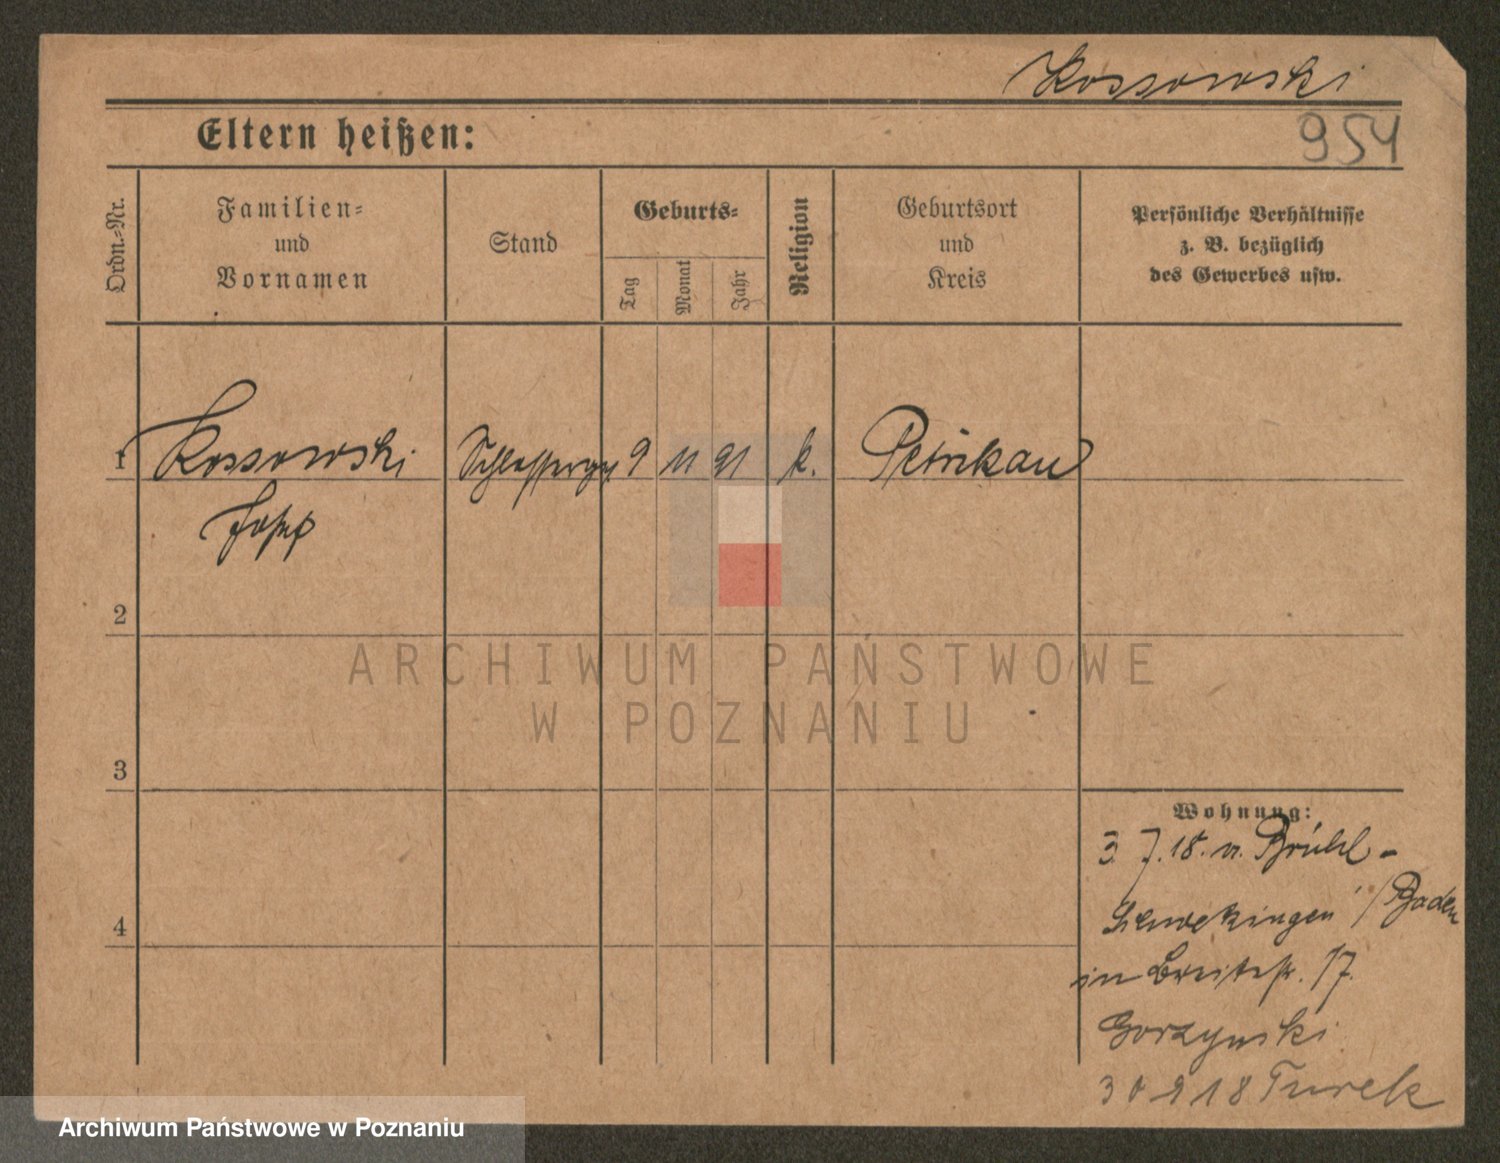 Kossowski
954
Eltern heißen:
Ordn.-Nr.
Familien-
und
Vornamen
Stand
Geburts-
Tag
Monat
Jahr
Religion
Geburtsort
und
Kreis
Persönliche Verhältnisse
z. B. bezüglich
des Gewerbes usw.
1 Kossowski 9 11 91 k. Petrikau
Josef
2
3
4
Wohnung:
3. 7. 18. n. Brühl-
/Baden
in Breitestr. 17.
Gorzynski
30 9 18 Turek
ARCHIWUM PAŃSTWOWE
W POZNANIU
Archiwum Państwowe w Poznaniu